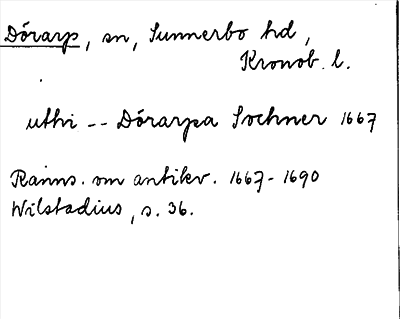 Dörarp, sn, Sunnerbo hd,
Kronob. l.
uthi -- Dörarpa Sochner 1667
Ranns. om antikv. 1667-1690
Wilstadius, s. 36.